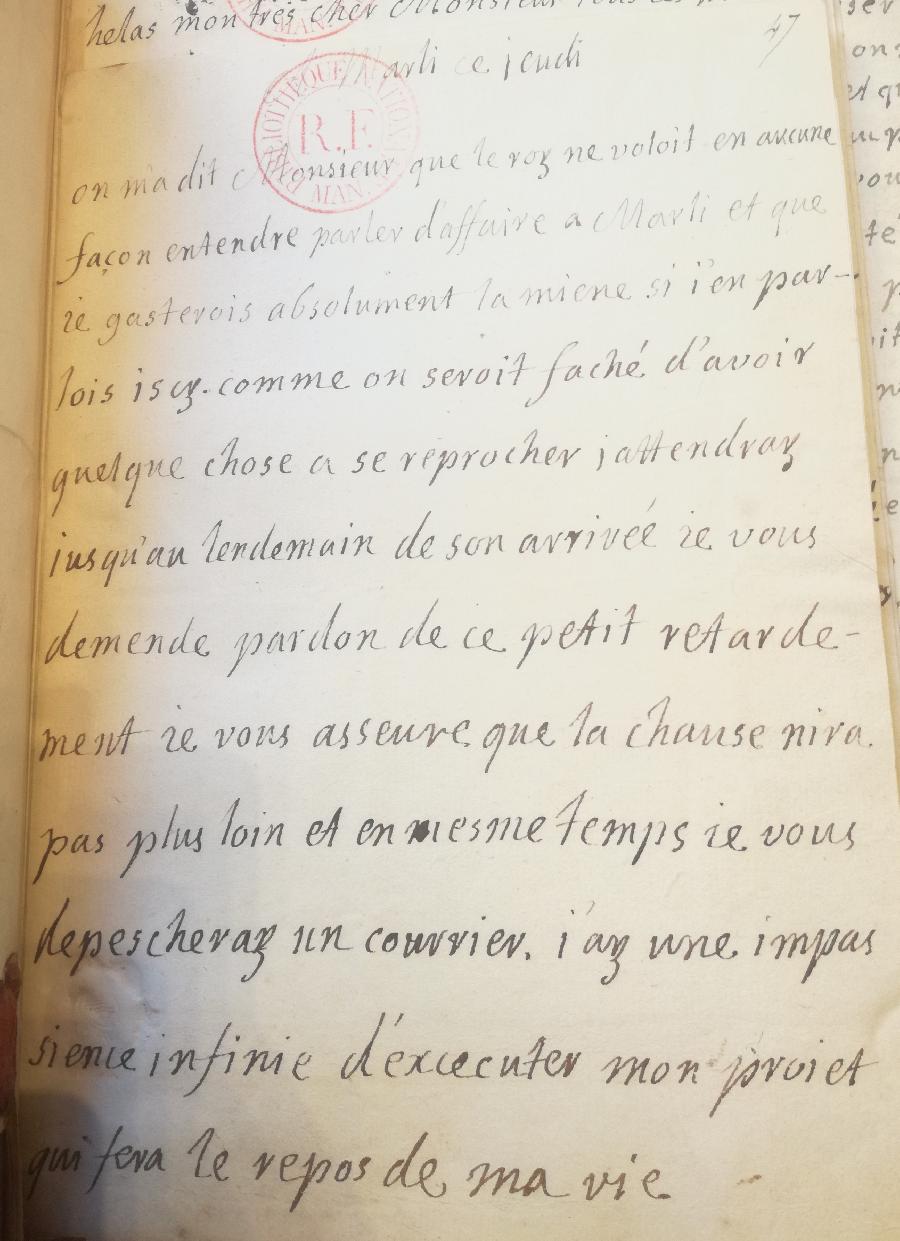 helas mon tres cher Monsieur
47
Marli ce jeudi
BIBLIOTHEQUE NATIONALE
R.F.
MAN.
on m'a dit Monsieur que le roy ne voloit en aucune
façon entendre parler d'affaire a Marli et que
ie gasterois absolument la miene si i'en par-
lois iscy. comme on seroit faché d'avoir
quelque chose a se reprocher jattendray
iusqu'au lendemain de son arrivéé ie vous
demende pardon de ce petit retarde-
ment ie vous asseure que la chause nira
pas plus loin et en mesme temps ie vous
depescheray un courrier. i'ay une impas
sience infinie d'excecuter mon proiet
qui fera le repos de ma vie